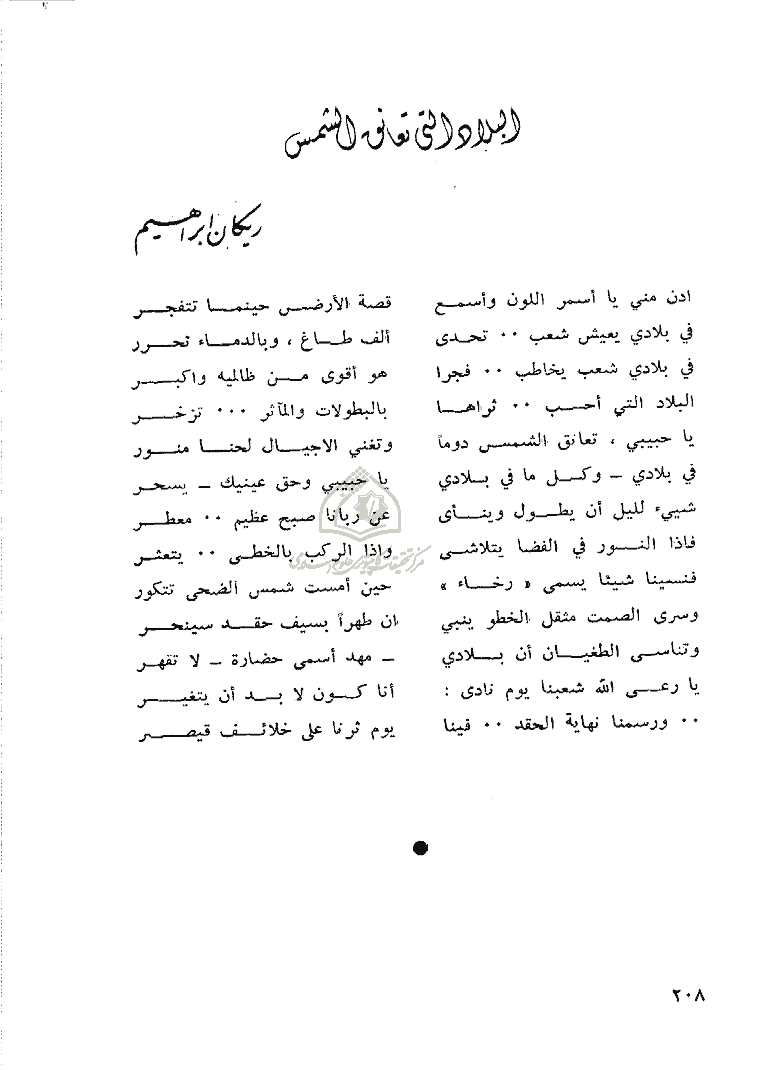 البلاد التي تعانق الشمس
ريكان ابراهيم
ادن مني يا أسمر اللون وأسمع قصة الأرض حينما تتفجر
في بلادي يعيش شعب ٠٠ تحدى ألف طاغ ، وبالدماء تحرر
في بلادي شعب يخاطب ٠٠ فجرا هو أقوى من ظالميه واكبر
البلاد التي أحب ٠٠ ثراها بالبطولات والمآثر ٠٠٠ تزخر
يا حبيبي ، تعانق الشمس دوماً وتغني الاجيال لحنا منور
في بلادي – وكل ما في بلادي يا حبيبي وحق عينيك – يسحر
شييء لليل أن يطول وينأى عن ربانا صبح عظيم ٠٠ معطر
فاذا النور في الفضا يتلاشى واذا الركب بالخطى ٠٠ يتعثر
فنسينا شيئا يسمى « رخاء » حين أمست شمس الضحى تتكور
وسرى الصمت مثقل الخطو ينبي ان طهراً بسيف حقد سينحر
وتناسى الطغيان أن بلادي – مهد أسمى حضارة – لا تقهر
يا رعى الله شعبنا يوم نادى : أنا كون لا بد أن يتغير
٠٠ ورسمنا نهاية الحقد ٠٠ فينا يوم ثرنا على خلائف قيصر
٢٠٨